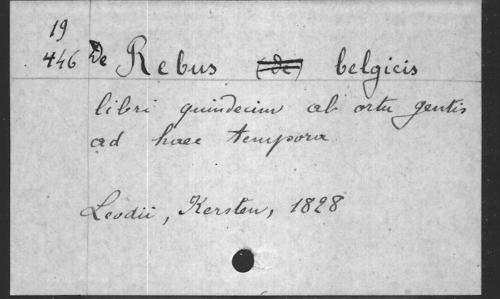 19
446 De Rebus (de) belgicis
libri quindecim ab ortu gentis
ad haec tempora
Leodii, Kersten, 1828